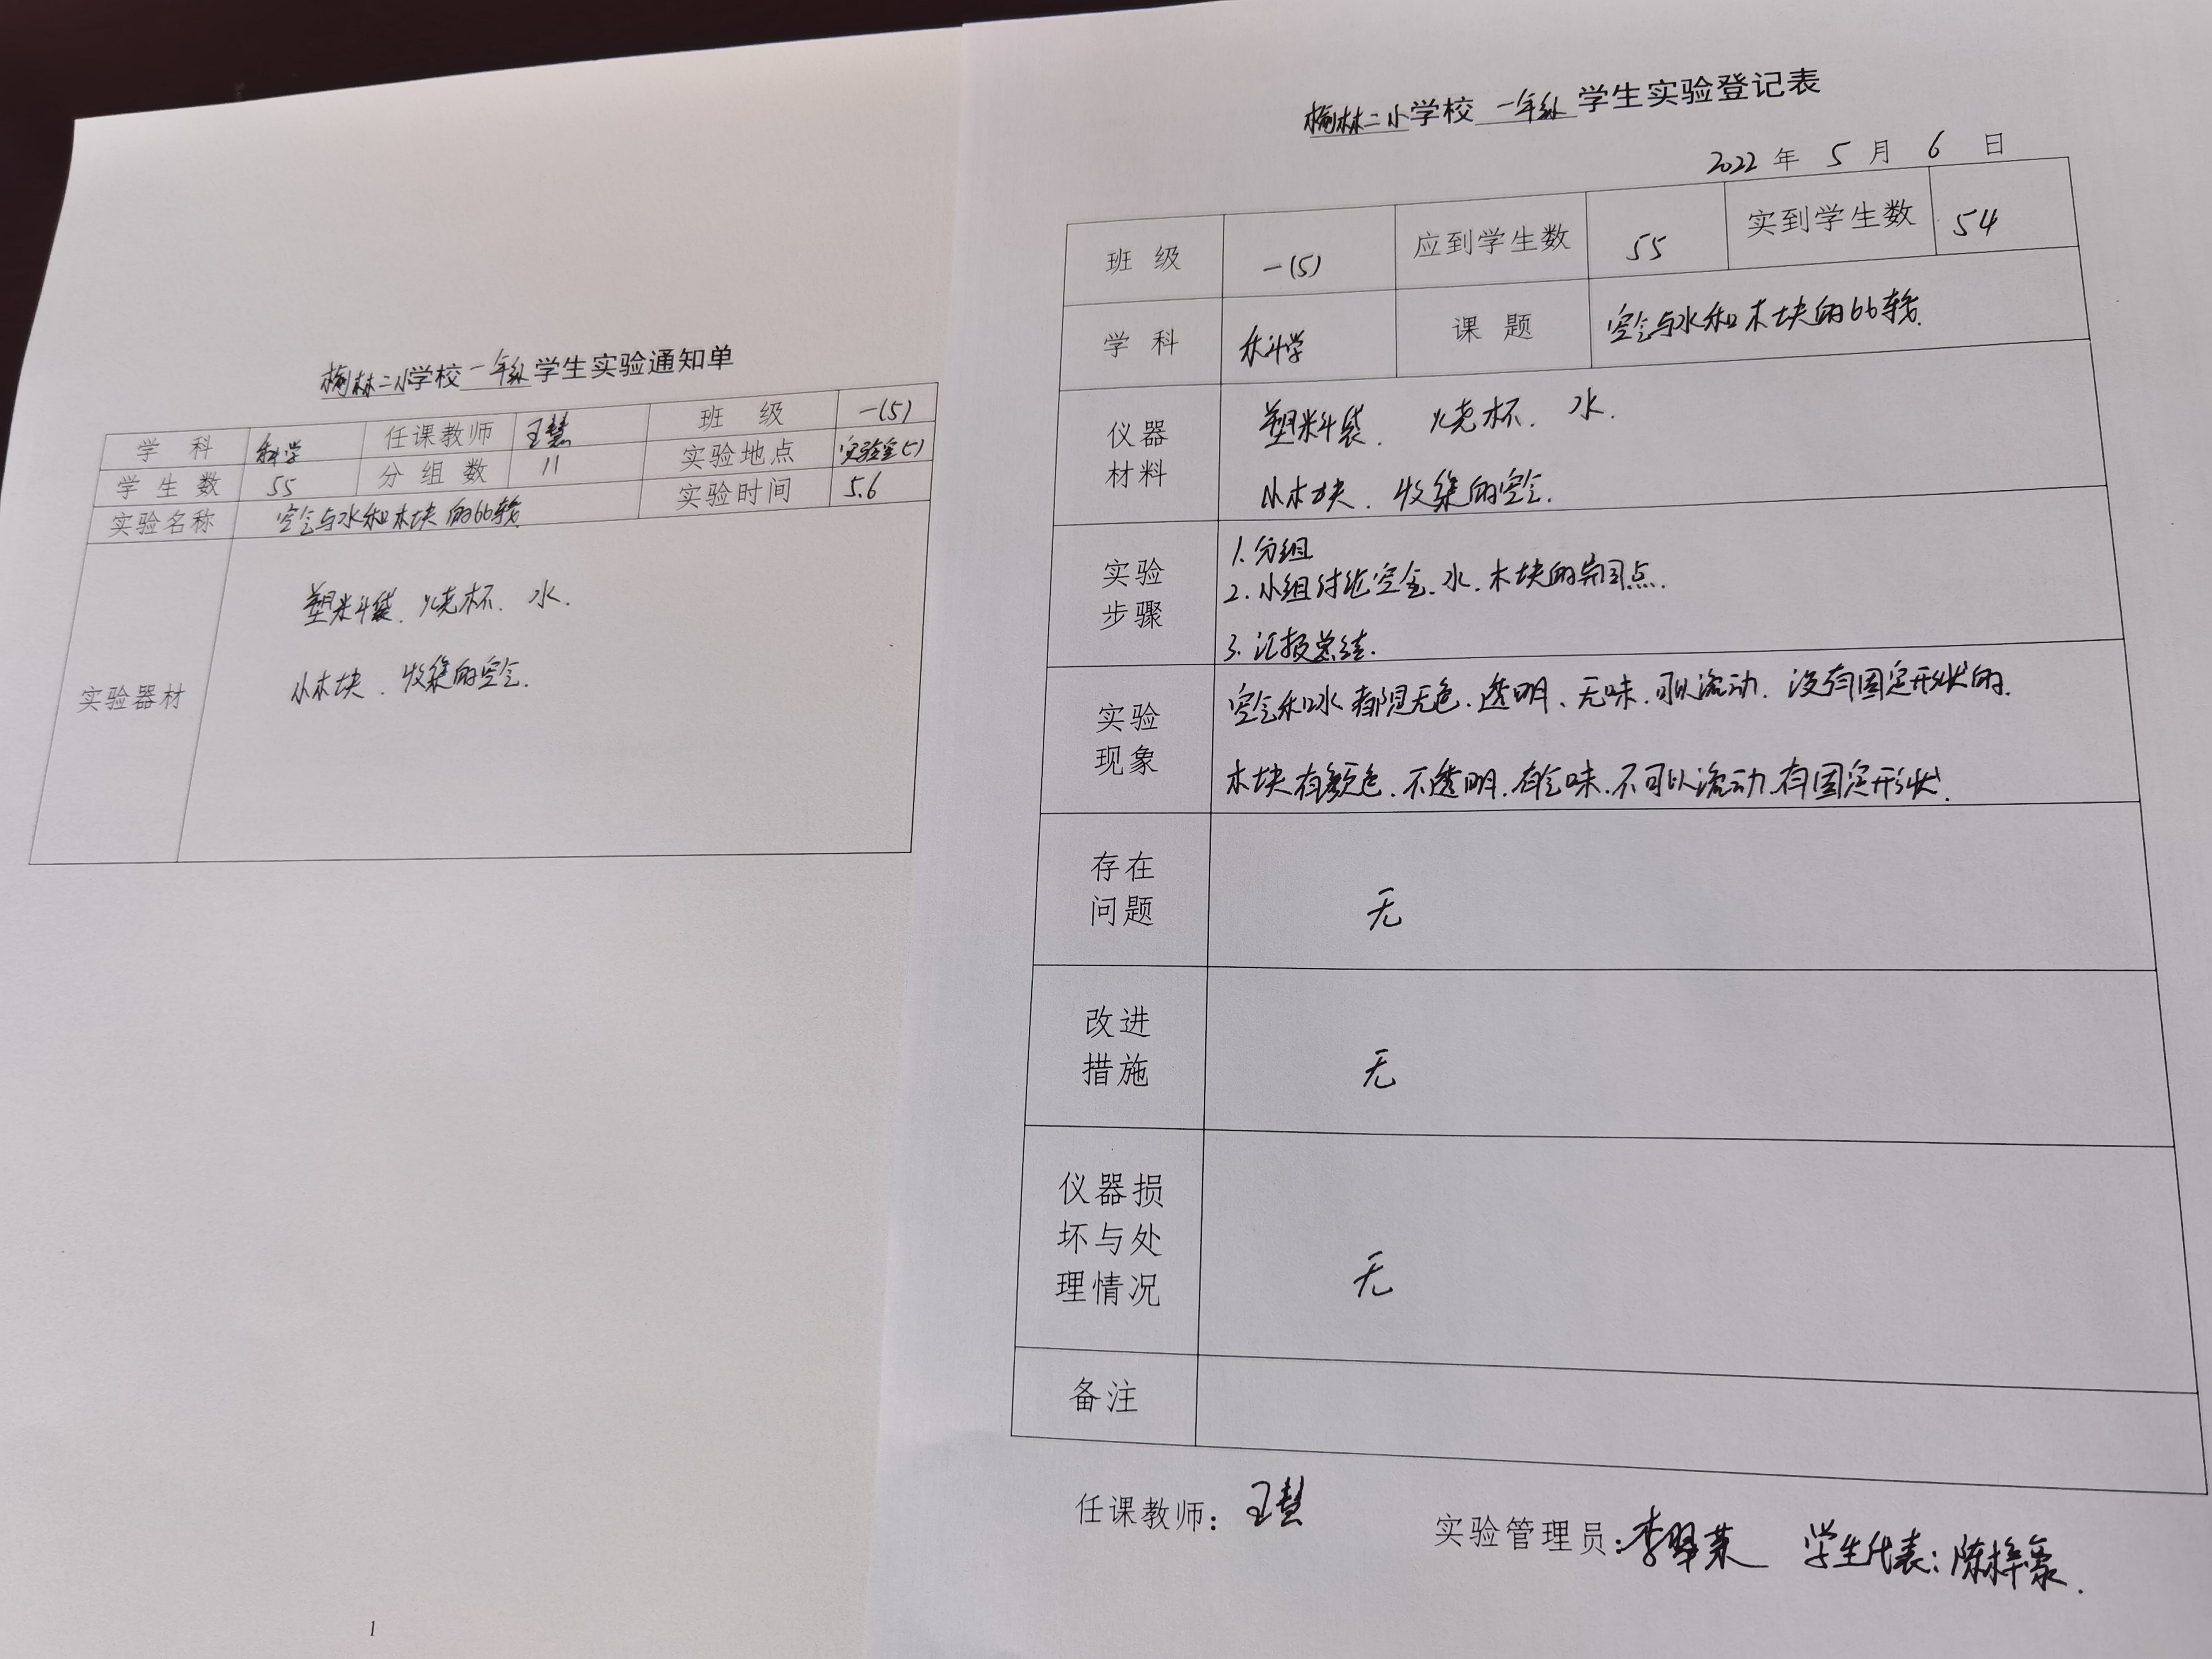 榆林二小学校一年级学生实验通知单
学 科 科学 任课教师 王慧 班 级 一(5)
学生数 55 分组数 11 实验地点 实验室(二)
实验名称 空气与水和木块的比较 实验时间 5.6
实验器材
塑料袋、烧杯、水、
小木块、收集的空气.
1
榆林二小学校一年级学生实验登记表
2022 年 5 月 6 日
班 级 一(5) 应到学生数 55 实到学生数 54
学 科 科学 课 题 空气与水和木块的比较.
仪器
材料
塑料袋、烧杯、水.
小木块、收集的空气.
实验
步骤
1.分组
2.小组讨论空气、水、木块的异同点.
3.汇报总结.
实验
现象
空气和水都是无色、透明、无味、可以流动、没有固定形状的.
木块有颜色、不透明、有气味、不可以流动、有固定形状.
存在
问题
无
改进
措施
无
仪器损
坏与处
理情况
无
备注
任课教师：王慧 实验管理员：李 学生代表：陈梓豪.